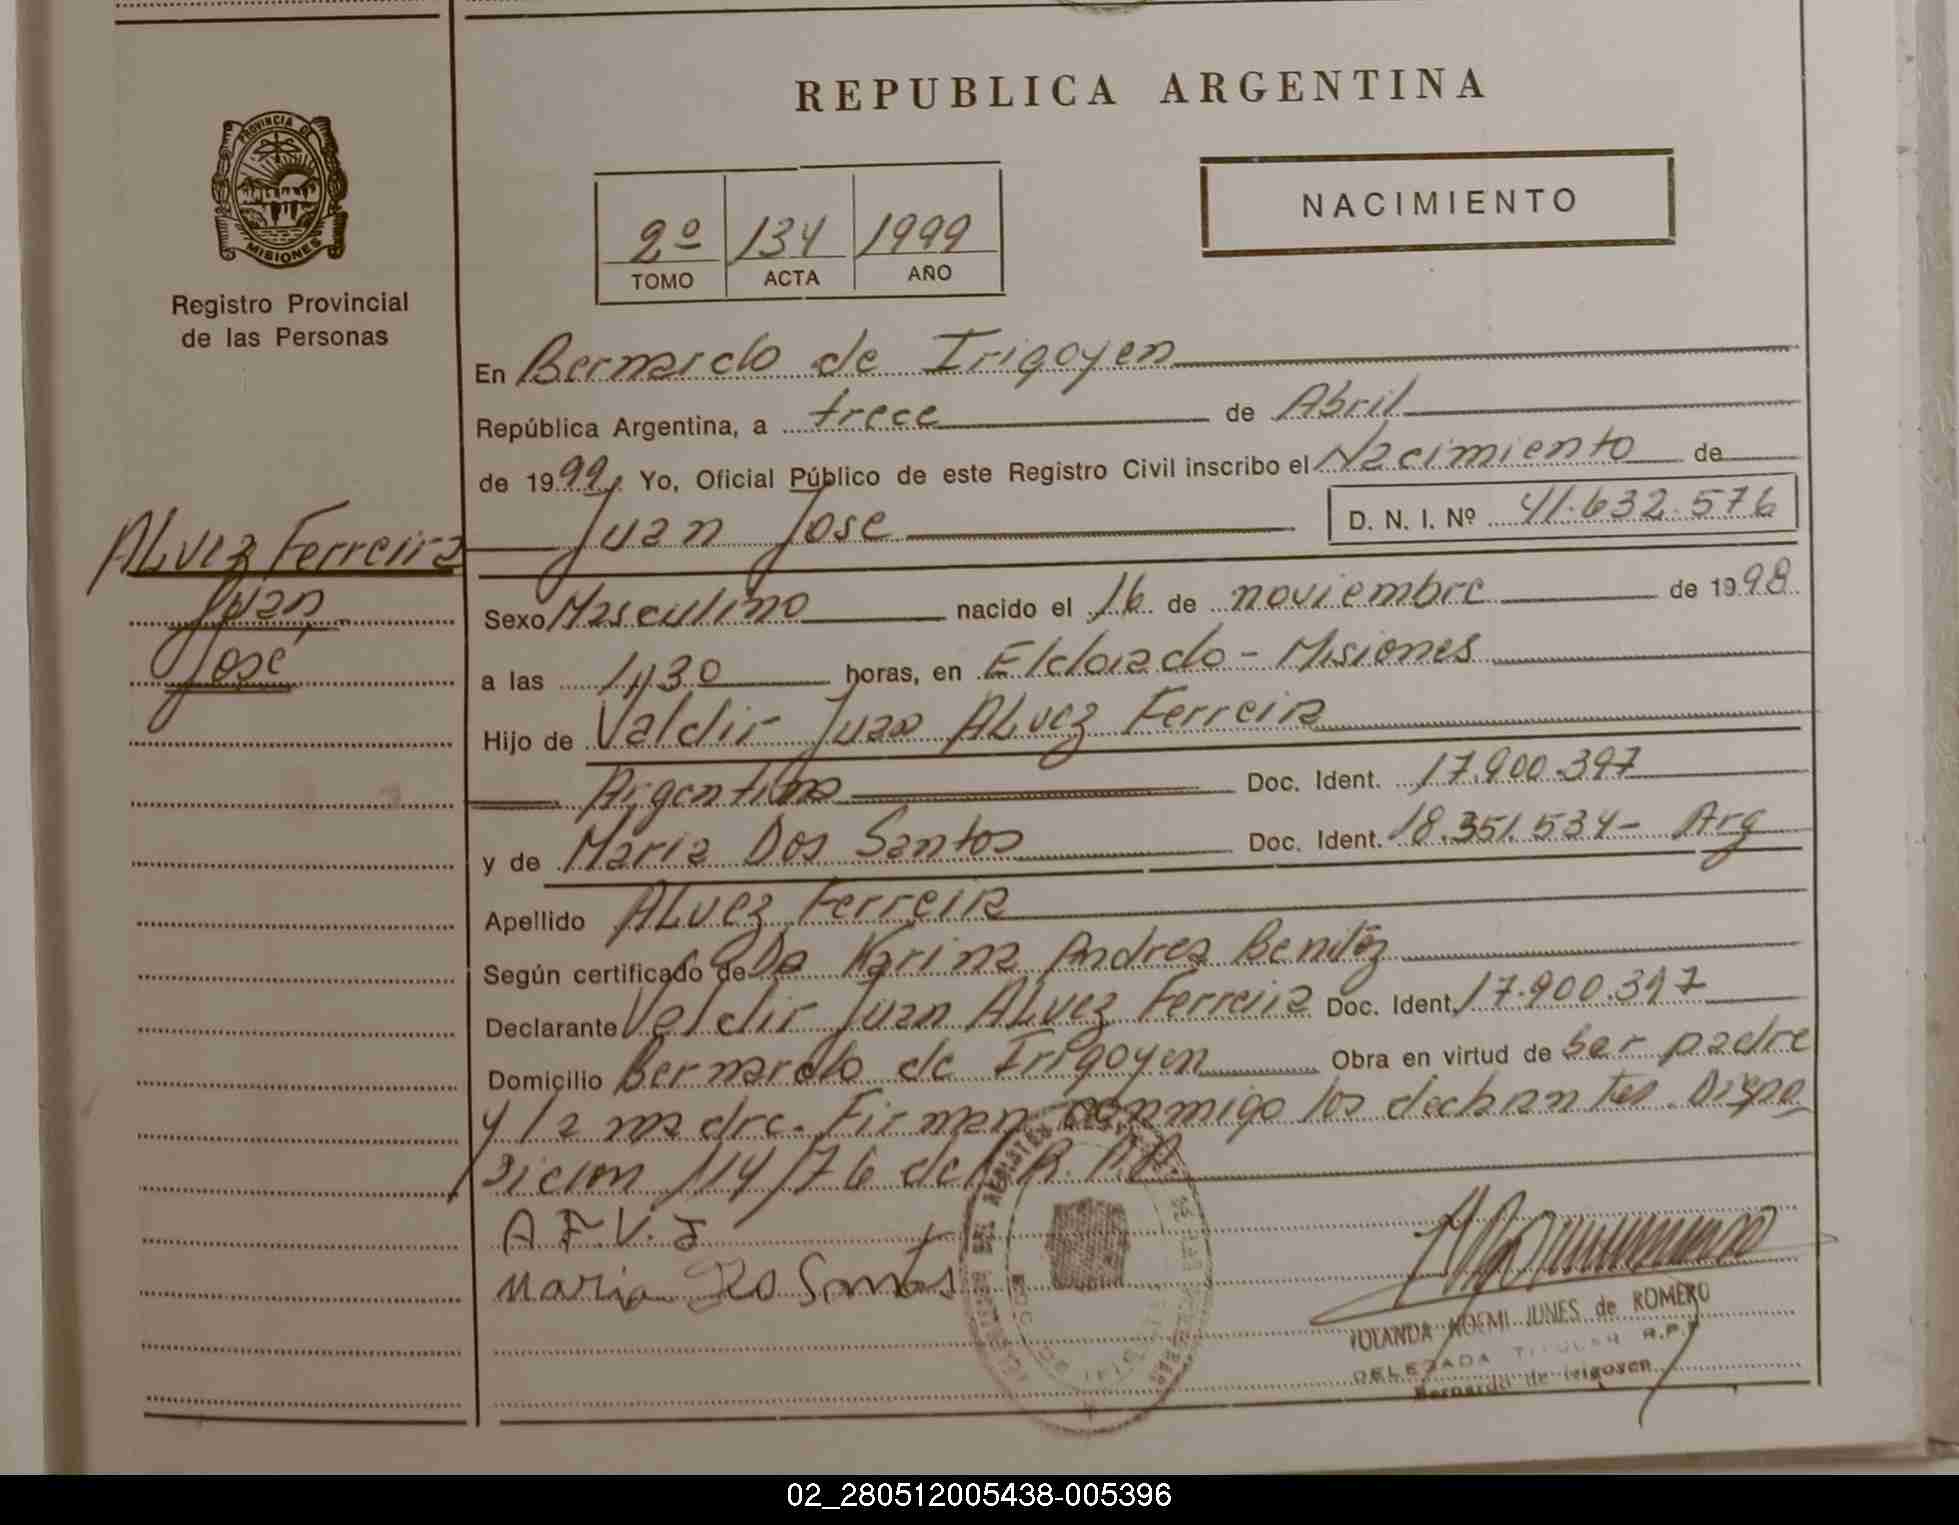 REPUBLICA ARGENTINA
PROVINCIA DE
MISIONES
Registro Provincial
de las Personas
NACIMIENTO
2º 134 1999
TOMO ACTA AÑO
En Bernardo de Irigoyen
República Argentina, a trece de Abril
de 1999. Yo, Oficial Público de este Registro Civil inscribo el Nacimiento de
Juan Jose D. N. I. Nº 41.632.576
ALvez Ferreira
Juan
José
Sexo Masculino nacido el 16 de noviembre de 1998
a las 1,30 horas, en Eldorado - Misiones
Hijo de Valdir Juan ALvez Ferreira
Argentino Doc. Ident. 17.900.397
y de Maria Dos Santos Doc. Ident. 18.351.534- Arg
Apellido ALvez Ferreira
Según certificado de Da Karina Andrea Benitez
Declarante Valdir Juan ALvez Ferreira Doc. Ident. 17.900.397
Domicilio Bernardo de Irigoyen Obra en virtud de ser padre
y la madre. Firman conmigo los declarantes. Dispo
sicion 114/76 del R.P.P.
A F.V.J
Maria Do Santos
YOLANDA NOEMI JUNES de ROMERO
DELEGADA TITULAR R.P.P
Bernardo de Irigoyen
02_280512005438-005396